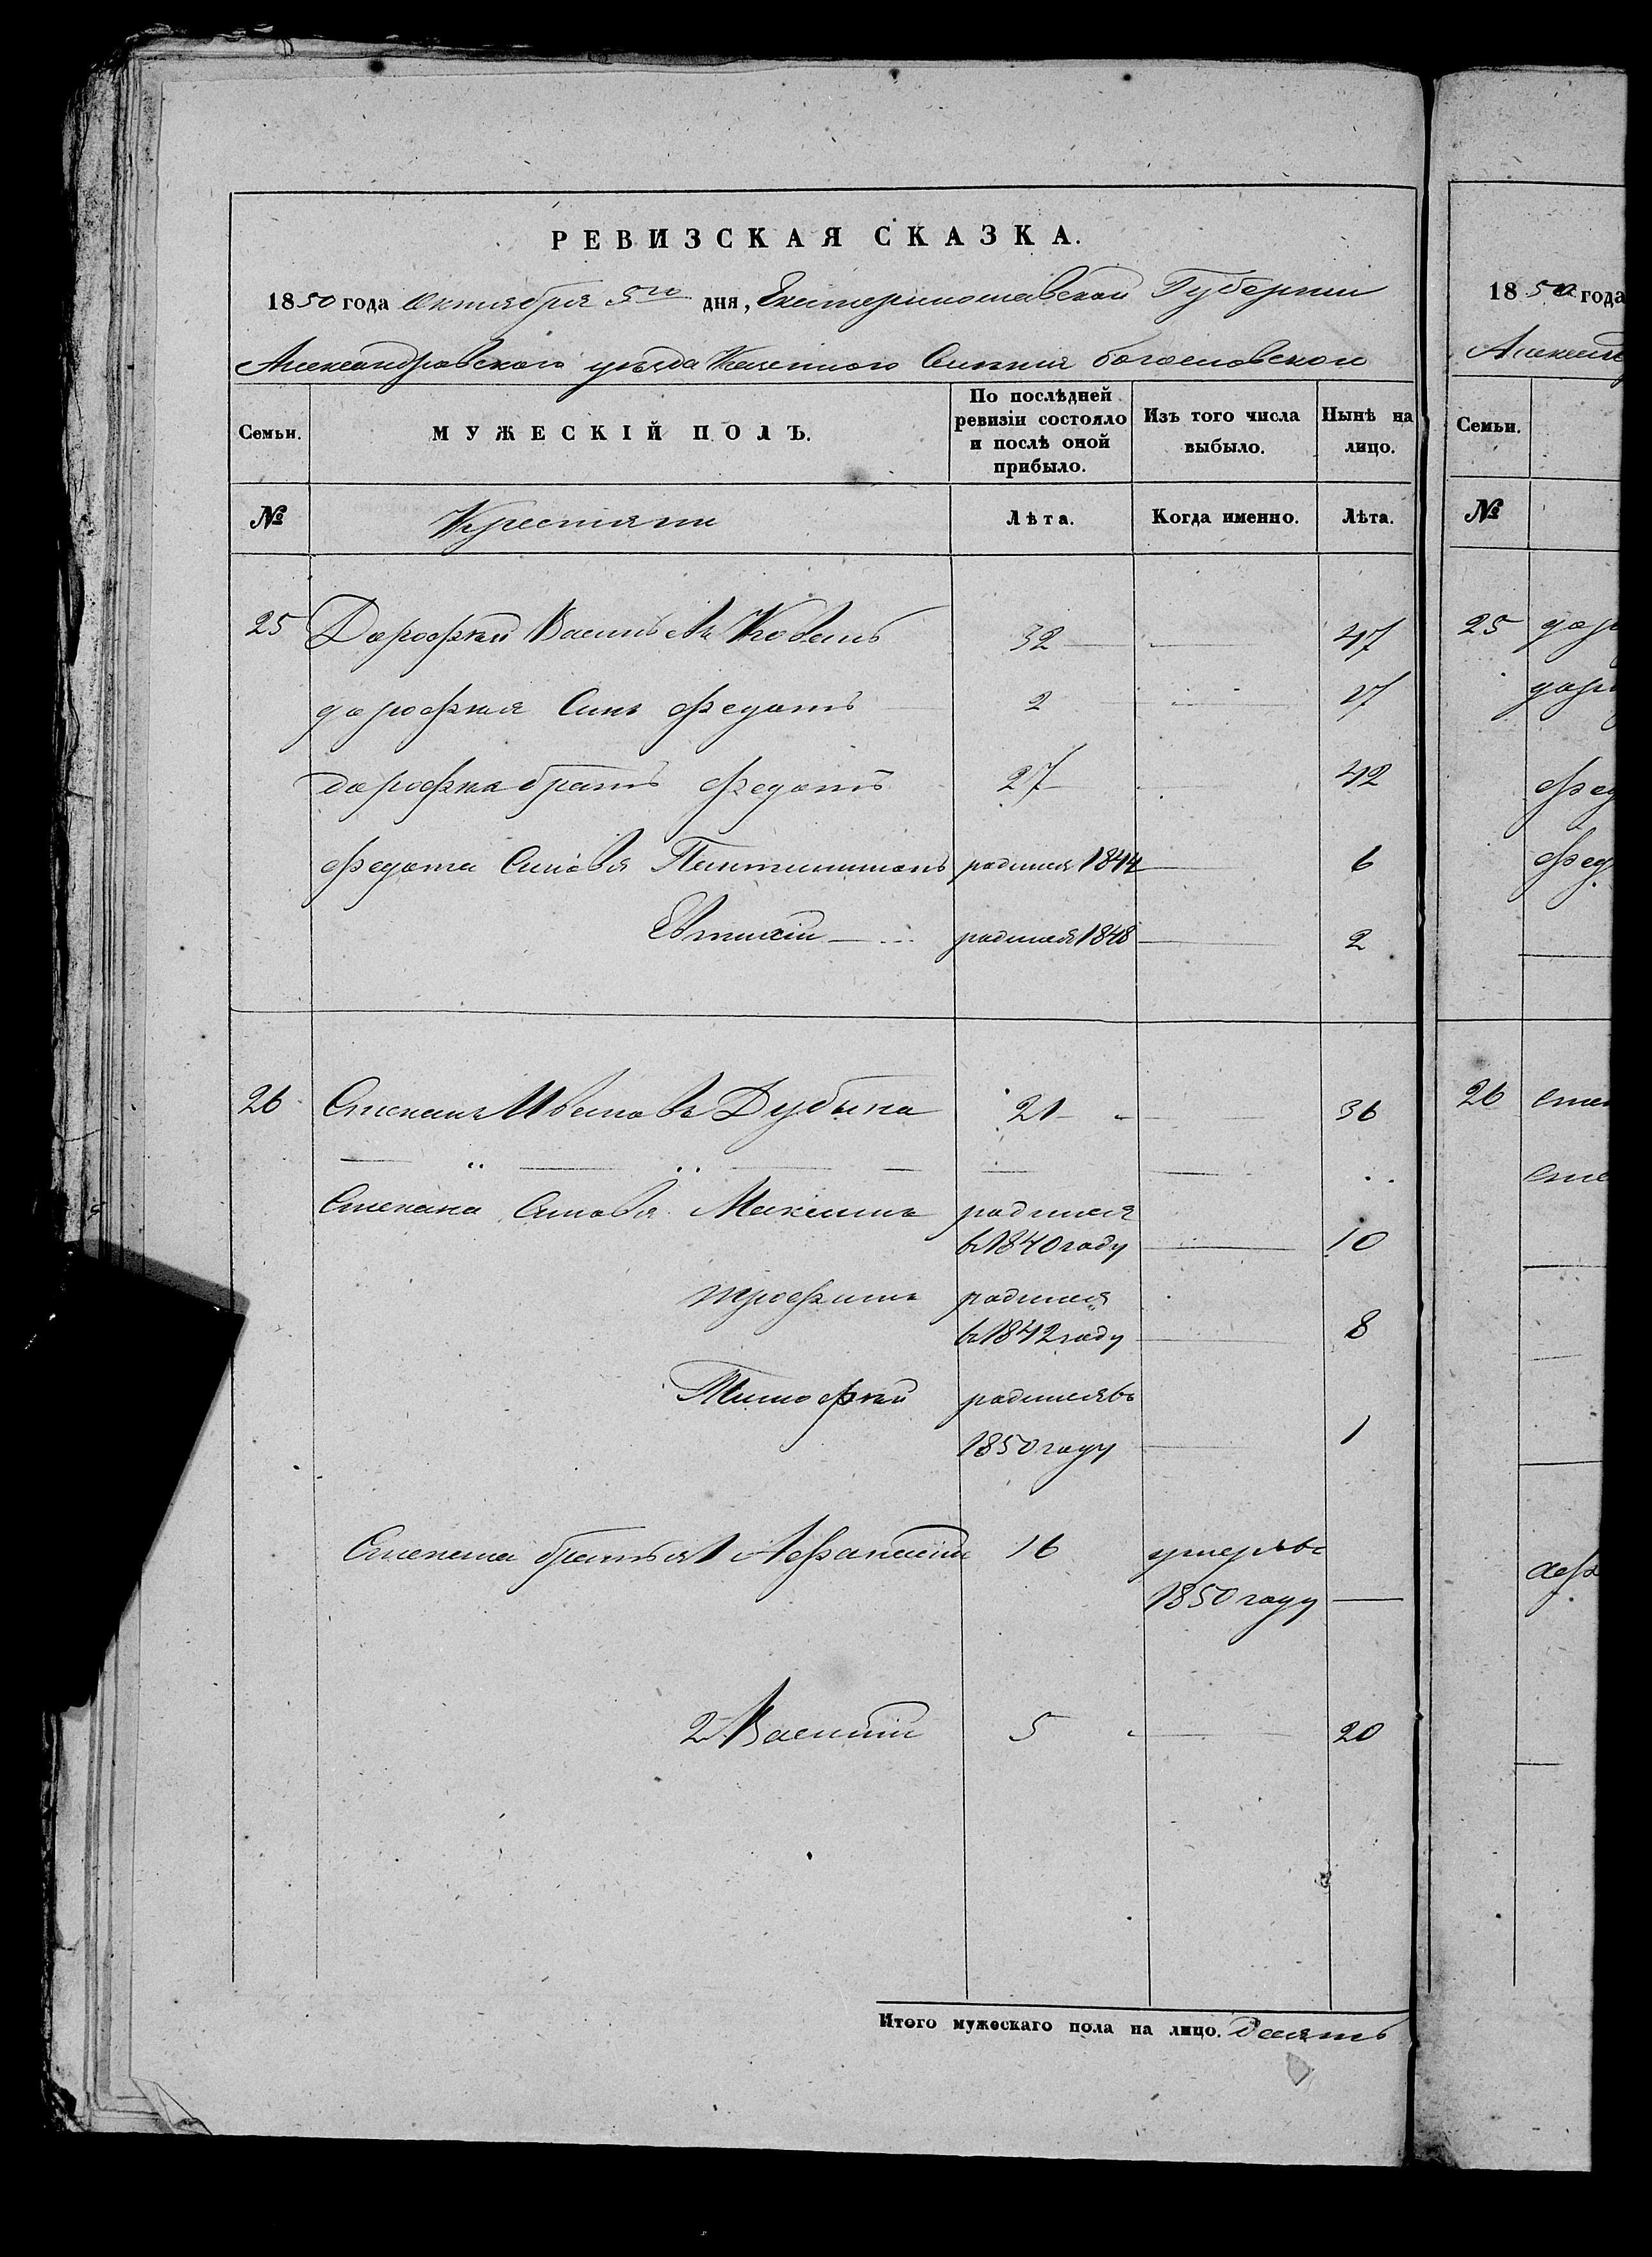 РЕВИЗСКАЯ СКАЗКА.
1850 года Октября 5го дня, Екатеринославской Губернии
Александровского уезда Казенного Силения богословского
Семьи. МУЖЕСКІЙ ПОЛЪ. По послѣдней ревизіи состояло и послѣ оной прибыло. Изъ того числа выбыло. Нынѣ на лицо.
№ Крестяни Лѣта. Когда именно. Лѣта.
25 Дорофѣй Васильевъ Коваль 32 — 47
дорофѣя Синъ Федотъ 2 — 17
дорофѣя братъ Федотъ 27 — 42
Федота Синовя Пантилимонъ родился 1844 — 6
Евтихій — родился 1848 — 2
26 Степанъ Ивановъ Дубына 21 — 36
Степана Синовя Максимъ родился
въ 1840 году — 10
трофимъ родился
въ 1842 году — 8
Тимофѣй родился въ
1850 году — 1
Степана братья 1 Афанасій 16 умеръ въ
1850 году —
2 Василій 5 — 20
Итого мужескаго пола на лицо. Десять
18 50 года
Семьи.
№
25
26